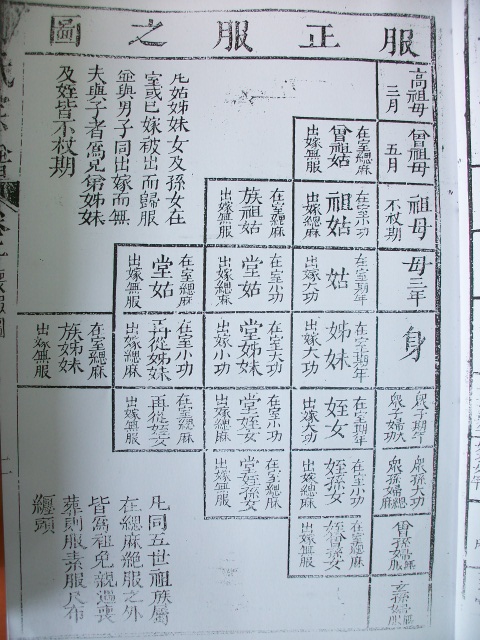 服正服之圖
高祖母
三月
曾祖母
五月
在室緦麻
曾祖姑
出嫁無服
祖母
不杖期
在室小功
祖姑
出嫁緦麻
在室緦麻
族祖姑
出嫁無服
母三年
在室期年
姑
出嫁大功
在室小功
堂姑
出嫁緦麻
在室緦麻
堂姑
出嫁無服
身
在室期年
姊妹
出嫁大功
在室大功
堂姊妹
出嫁小功
在室小功
再從姊妹
出嫁緦麻
在室緦麻
族姊妹
出嫁無服
眾子期年
眾子婦大功
在室期年
姪女
出嫁大功
在室小功
堂姪女
出嫁緦麻
在室緦麻
再從姪女
出嫁無服
眾孫大功
眾孫婦緦麻
在室小功
姪孫女
出嫁緦麻
在室緦麻
堂姪孫女
出嫁無服
在室緦麻
姪曾孫女
出嫁無服
凡姑姊妹女及孫女在
室或已嫁被出而歸服
並與男子同出嫁而無
夫與子者為兄弟姊妹
及姪皆不杖期
凡同五世祖族屬
在緦麻絕服之外
皆為袒免親遇喪
葬則服素服尺布
纏頭